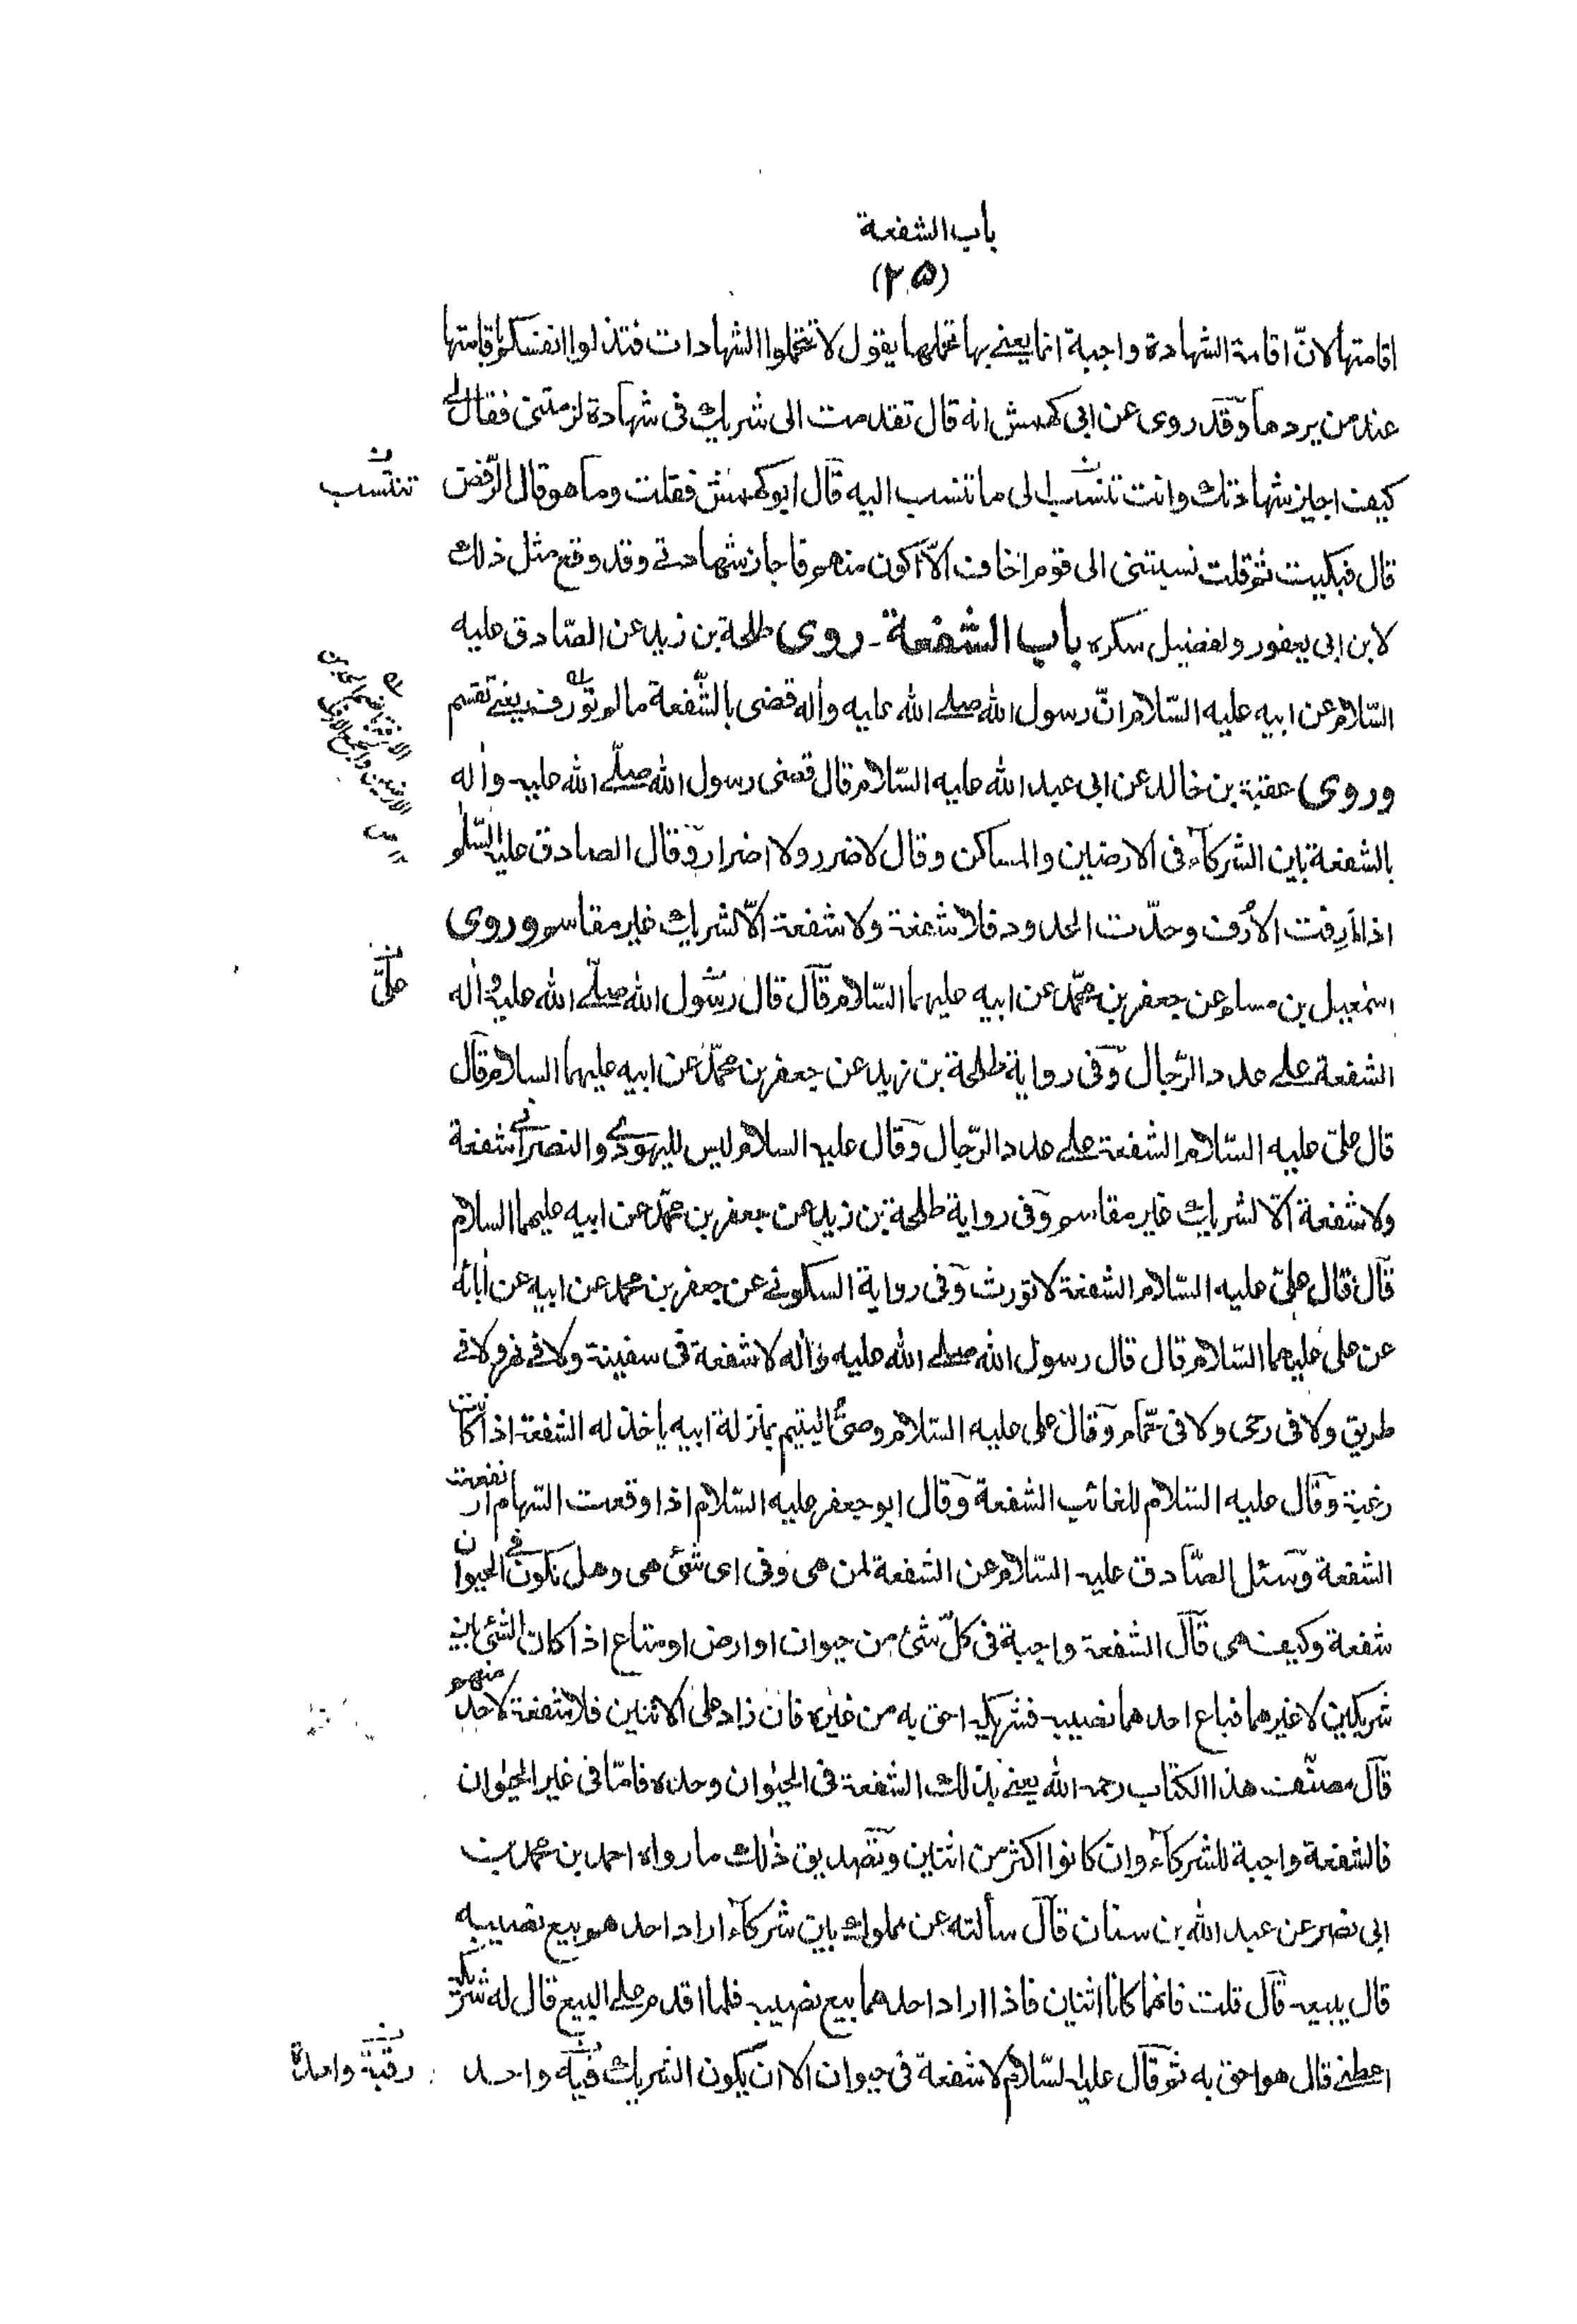 باب الشفعة
(٢٥)
اقامتها لانّ اقامة الشهادة واجبة انما يعنے بها تحملها يقول لا تتحملوا الشهادات فتذلوا انفسكم باقامتها
عند من يردها وقد روى عن ابى كهمش انه قال تقدمت الى شريك فى شهادة لزمتنى فقال لے
كيف اجيز شهادتك وانت تنسب الى ما تنسب اليه قال ابو كهمش فقلت وما هو قال الرّفض
تنتسب
قال فبكيت ثم قلت نسبتنى الى قوم اخاف الّا اكون منهم فاجاز شهادتے وقد وقع مثل ذلك
لابن ابى يعفور ولفضيل سكره باب الشفعة ـ روى طلحة بن زيد عن الصّادق عليه
السّلام عن ابيه عليه السّلام انّ رسول الله صلے الله عليه واٰله قضى بالشّفعة ما لم تؤرف يعنے تقسم
وروى عقبة بن خالد عن ابى عبد الله عليه السّلام قال قضى رسول الله صلّے الله عليه واٰله
بالشفعة بين الشركآء فى الارضين والمساكن وقال لا ضرر ولا اضرار وقال الصادق عليه السّلم
اذا اُرِفت الاُرف وحدّت الحدود فلا شفعة ولا شفعة الّا لشريك غير مقاسم وروى
اسمٰعيل بن مسلم عن جعفر بن محمّد عن ابيه عليهما السّلام قال قال رسول الله صلّے الله عليه واٰله
علىّ
الشفعة علے عدد الرّجال وفى رواية طلحة بن زيد عن جعفر بن محمّد عن ابيه عليهما السلام قال
قال علىّ عليه السّلام الشفعة علے عدد الرّجال وقال عليه السلام ليس لليهودے والنصرانے شفعة
ولا شفعة الّا لشريك غير مقاسم وفى رواية طلحة بن زيد عن جعفر بن محمّد عن ابيه عليهما السلام
قال قال علىّ عليه السّلام الشفعة لا تورث وفى رواية السكونے عن جعفر بن محمد عن ابيه عن اٰبائه
عن على عليهما السّلام قال قال رسول الله صلے الله عليه واٰله لا شفعة فى سفينة ولا فے نهر ولا فے
طريق ولا فى رحى ولا فى حمّام وقال على عليه السّلام وصىّ اليتيم بمنزلة ابيه ياخذ له الشفعة اذا كانت
رغبة وقال عليه السّلام للغائب الشفعة وقال ابو جعفر عليه السّلام اذا وقعت السّهام ارتفعت
الشفعة وسئل الصّادق عليه السّلام عن الشفعة لمن هى وفى اى شئ هى وهل تكون فے الحيوان
شفعة وكيف هى قال الشفعة واجبة فى كلّ شئ من حيوان او ارض او متاع اذا كان الشئ بين
شريكين لا غيرهما فباع احدهما نصيبه فشريكه احق به من غيره فان زاد على الاثنين فلا شفعة لاحد منهم
قال مصنّف هذا الكتاب رحمه الله يعنے بذلك الشفعة فى الحيوان وحده فامّا فى غير الحيوان
فالشفعة واجبة للشركآء وان كانوا اكثر من اثنين وتصديق ذلك ما رواه احمد بن محمد بن
ابى نصر عن عبد الله بن سنان قال سألته عن مملوك بين شركآء اراد احدهم بيع نصيبه
قال يبيعه قال قلت فانهما كانا اثنين فاذا اراد احدهما بيع نصيبه فلما اقدم علے البيع قال له شريكه
اعطنے قال هو احق به ثم قال عليه السّلام لا شفعة فى حيوان الا ان يكون الشريك فيه واحد
رقبة واحدة